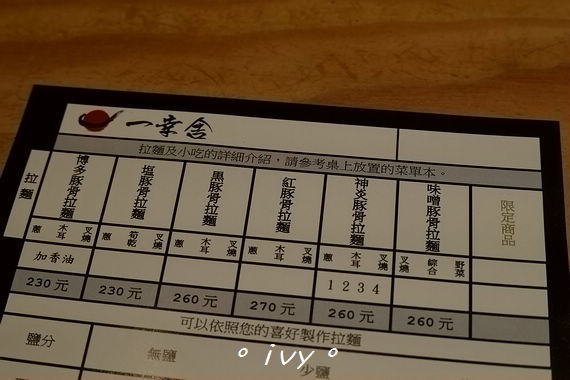 一幸舍
拉麵及小吃的詳細介紹，請參考桌上放置的菜單本。
拉麵
博多豚骨拉麵
塩豚骨拉麵
黒豚骨拉麵
紅豚骨拉麵
神炎豚骨拉麵
味噌豚骨拉麵
限定商品
蔥 木耳 叉燒
蔥 筍乾 叉燒
蔥 木耳 叉燒
蔥 木耳 叉燒
蔥 木耳 叉燒
叉燒 綜合 野菜
加香油
1 2 3 4
230 元
230 元
260 元
270 元
260 元
260 元
可以依照您的喜好製作拉麵
鹽分
無鹽
少鹽
° ivy °